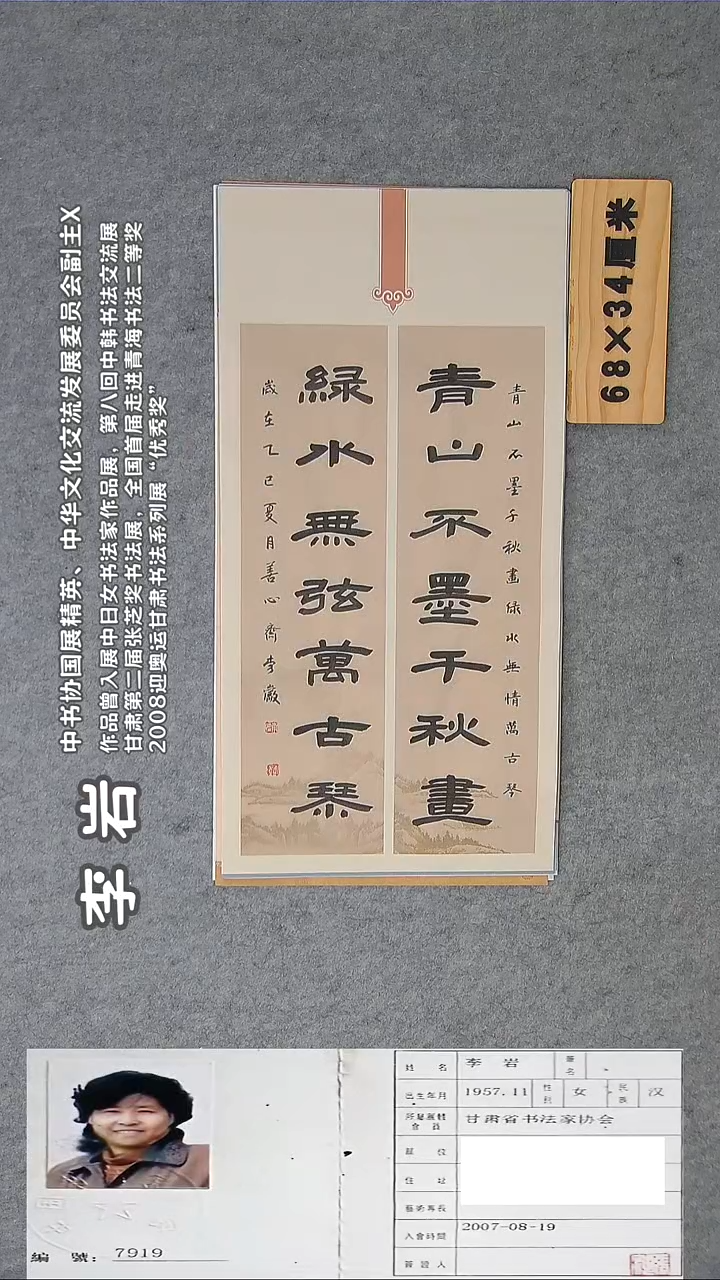 李岩
中书协国展精英、中华文化交流发展委员会副主X
作品曾入展中日女书法家作品展，第八回中韩书法交流展
甘肃第二届张芝奖书法展，全国首届走进青海书法二等奖
2008迎奥运甘肃书法系列展“优秀奖”
68×34厘米
青山不墨千秋畫綠水無情萬古琴
青山不墨千秋畫
綠水無弦萬古琴
歲在乙巳夏月善心齋李巖
編 號：7919
姓 名 李 岩 筆名
出生年月 1957.11 性别 女 民族 汉
所屬團體會員 甘肃省书法家协会
職 位
住 址
藝術專長
入會時間 2007-08-19
簽證人